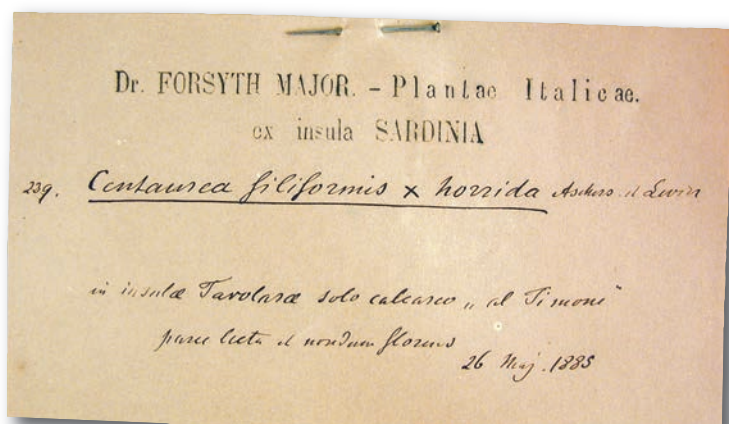 Dr. FORSYTH MAJOR. - Plantae Italicae.
ex insula SARDINIA
239. Centaurea filiformis x horrida Aschers. et Levier
in insulæ Tavolaræ solo calcareo „al Timone"
parce lecta et nondum florens
26 Maj. 1885